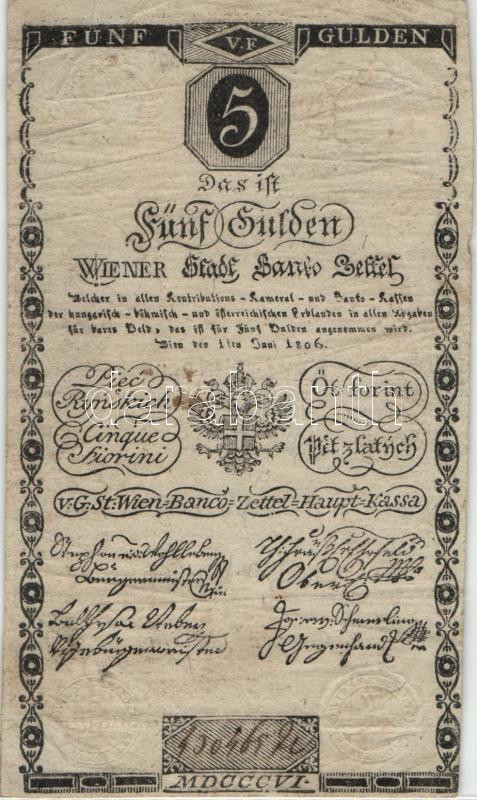 FÜNF V.F GULDEN
5
Das ist
Fünf Gulden
WIENER Stadt Banko Zettel
Welcher in allen Kontributions-Kameral-und Banko-Kassen
der hungarisch-böhmisch-und österreichischen Erblanden in allen Abgaben
für bares Geld, das ist für Fünf Gulden angenommen wird.
Wien den 1ten Juni 1806.
Pięć
Ryńskich
Cinque
Fiorini
Öt forint
Pět zlatých
darabanth
V:G:St:Wien=Banco=Zettel=Haupt=Kassa
Stephan
Burgermeister
Ober
MDCCCVI.